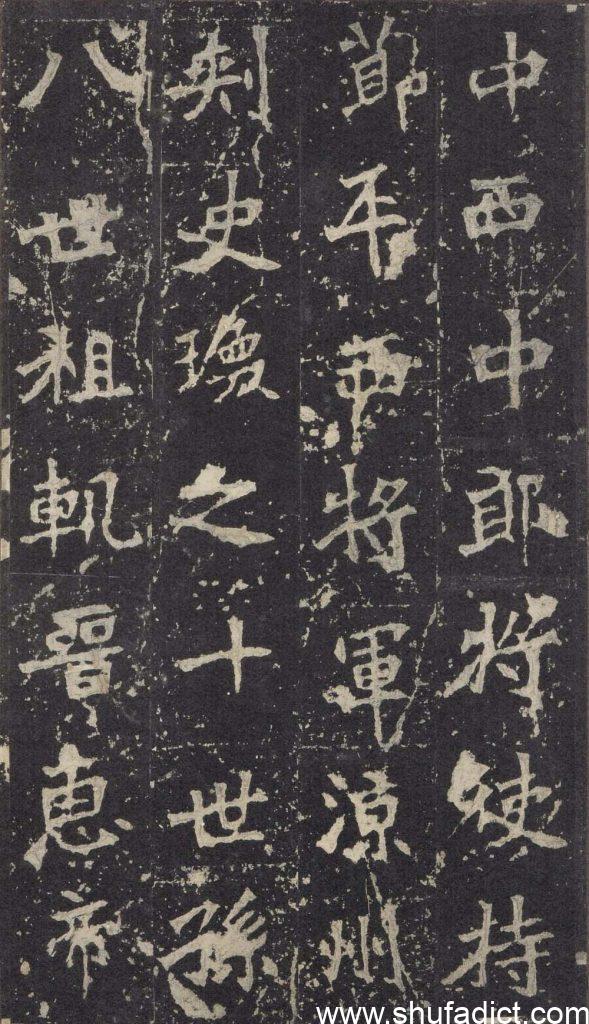 中西中郎将使持
節平西将軍涼州
刺史瓊之十世孫
八世祖軌晉惠帝
www.shufadict.com